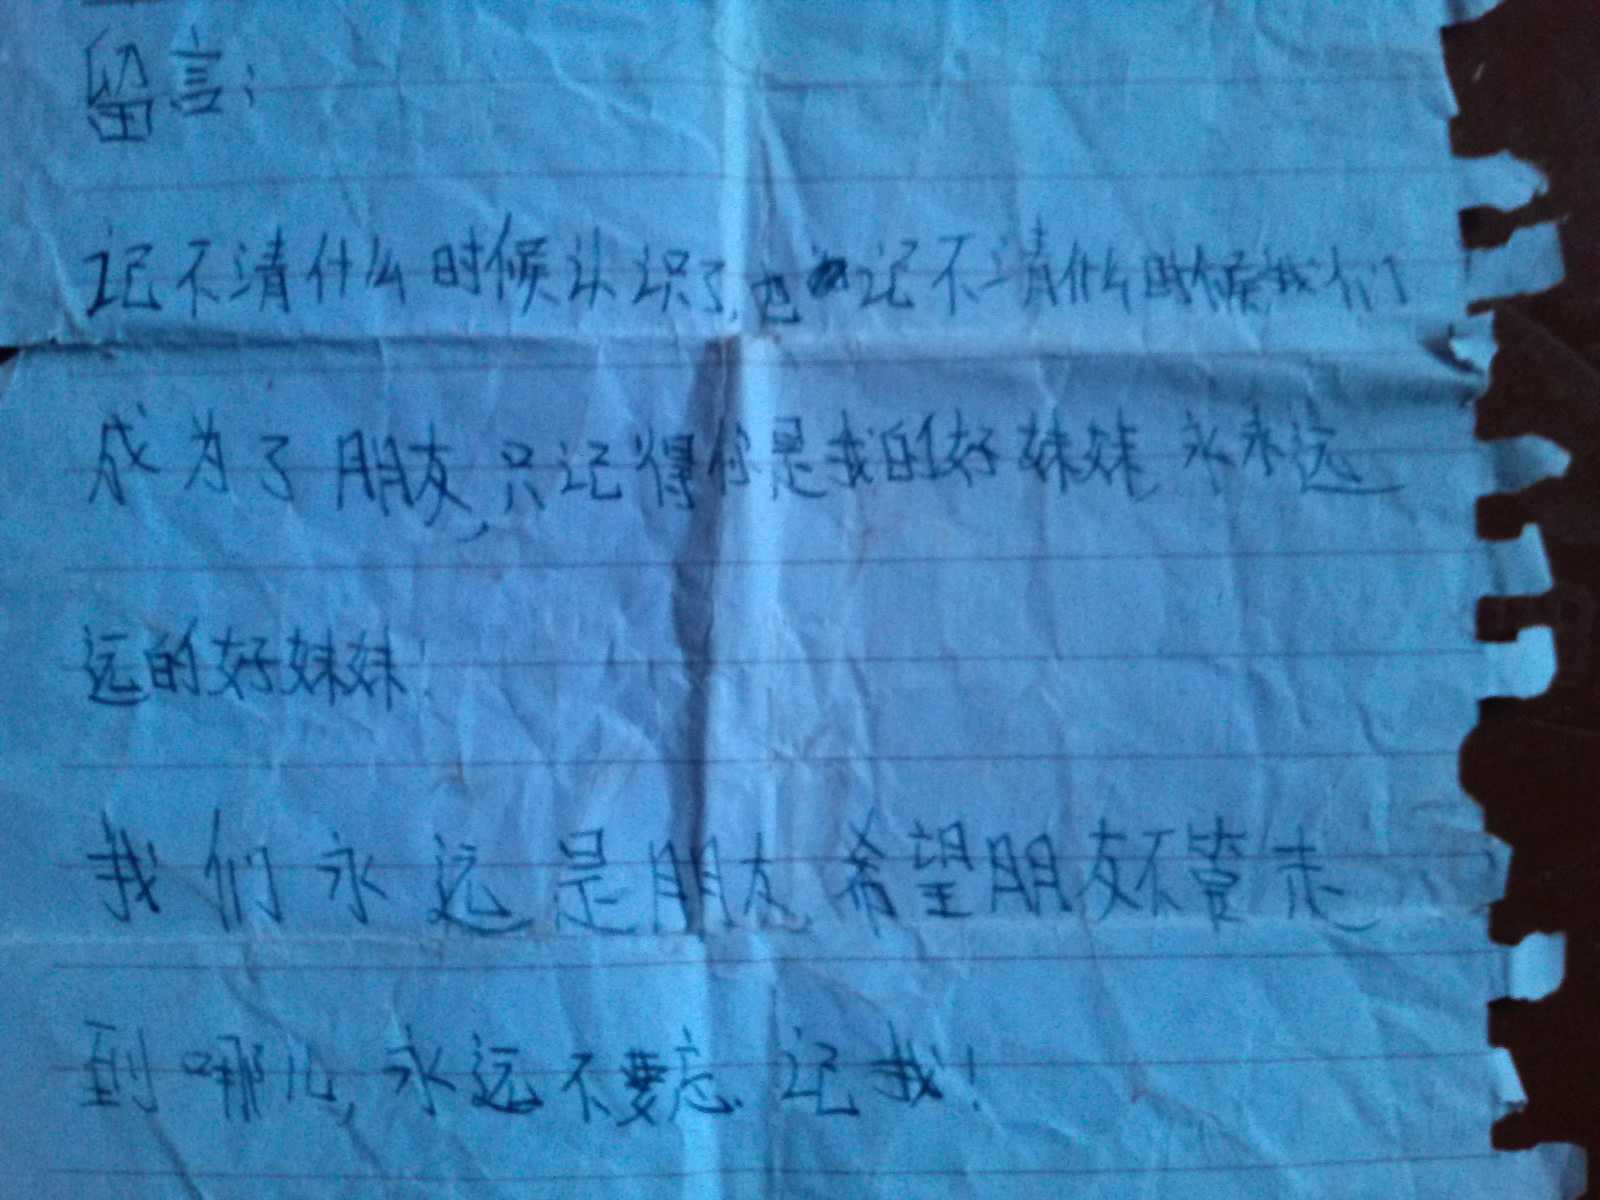 留言:
记不清什么时候认识了,也记不清什么时候我们
成为了朋友,只记得你是我的好妹妹,永永远
远的好妹妹!
我们永远是朋友,希望朋友不管走
到哪儿,永远不要忘记我!